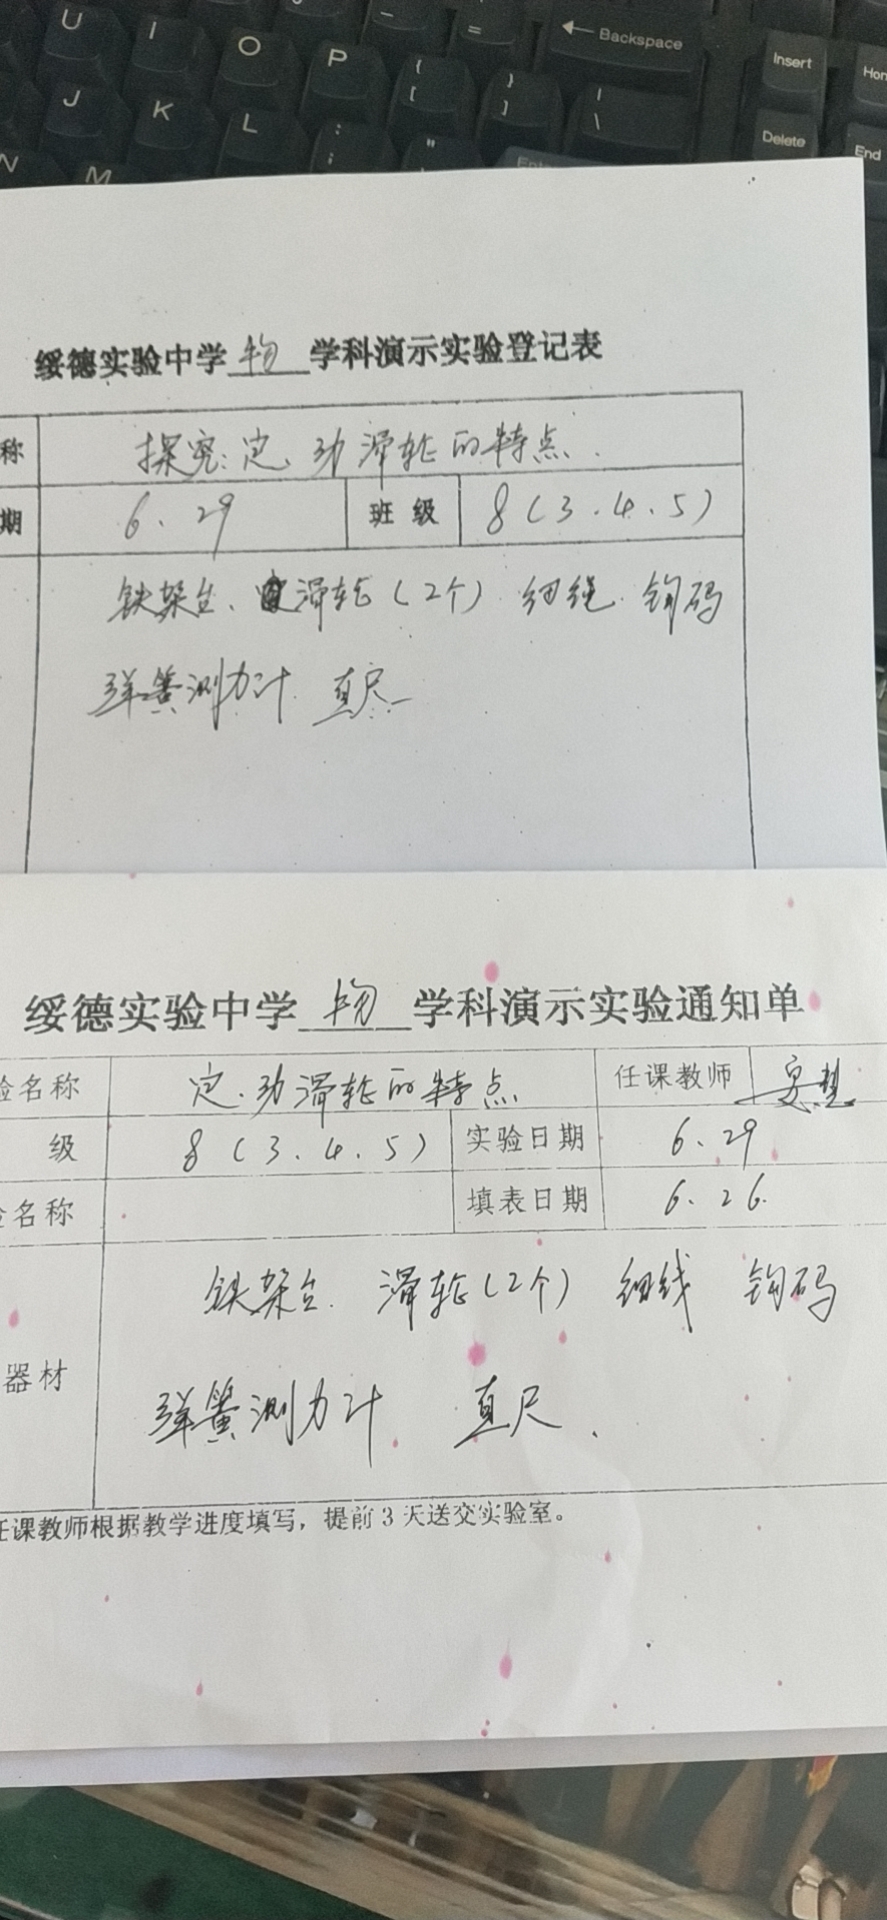 U I O P { [ } ] - = ← Backspace Insert Hom
J K L : ; " | \ Delete End
N M Ent
绥德实验中学 物 学科演示实验登记表
称 探究:定、动滑轮的特点.
期 6.29 班级 8(3.4.5)
铁架台、滑轮(2个) 细绳 钩码
弹簧测力计 直尺
绥德实验中学 物 学科演示实验通知单
验名称 定.动滑轮的特点 任课教师
级 8(3.4.5) 实验日期 6.29
验名称 填表日期 6.26.
铁架台. 滑轮(2个) 细线 钩码
器材
弹簧测力计 直尺.
任课教师根据教学进度填写，提前3天送交实验室。